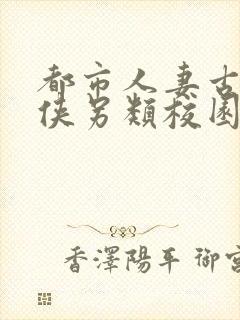 都市人妻古
侠另類校園
香澤陽平 御宮